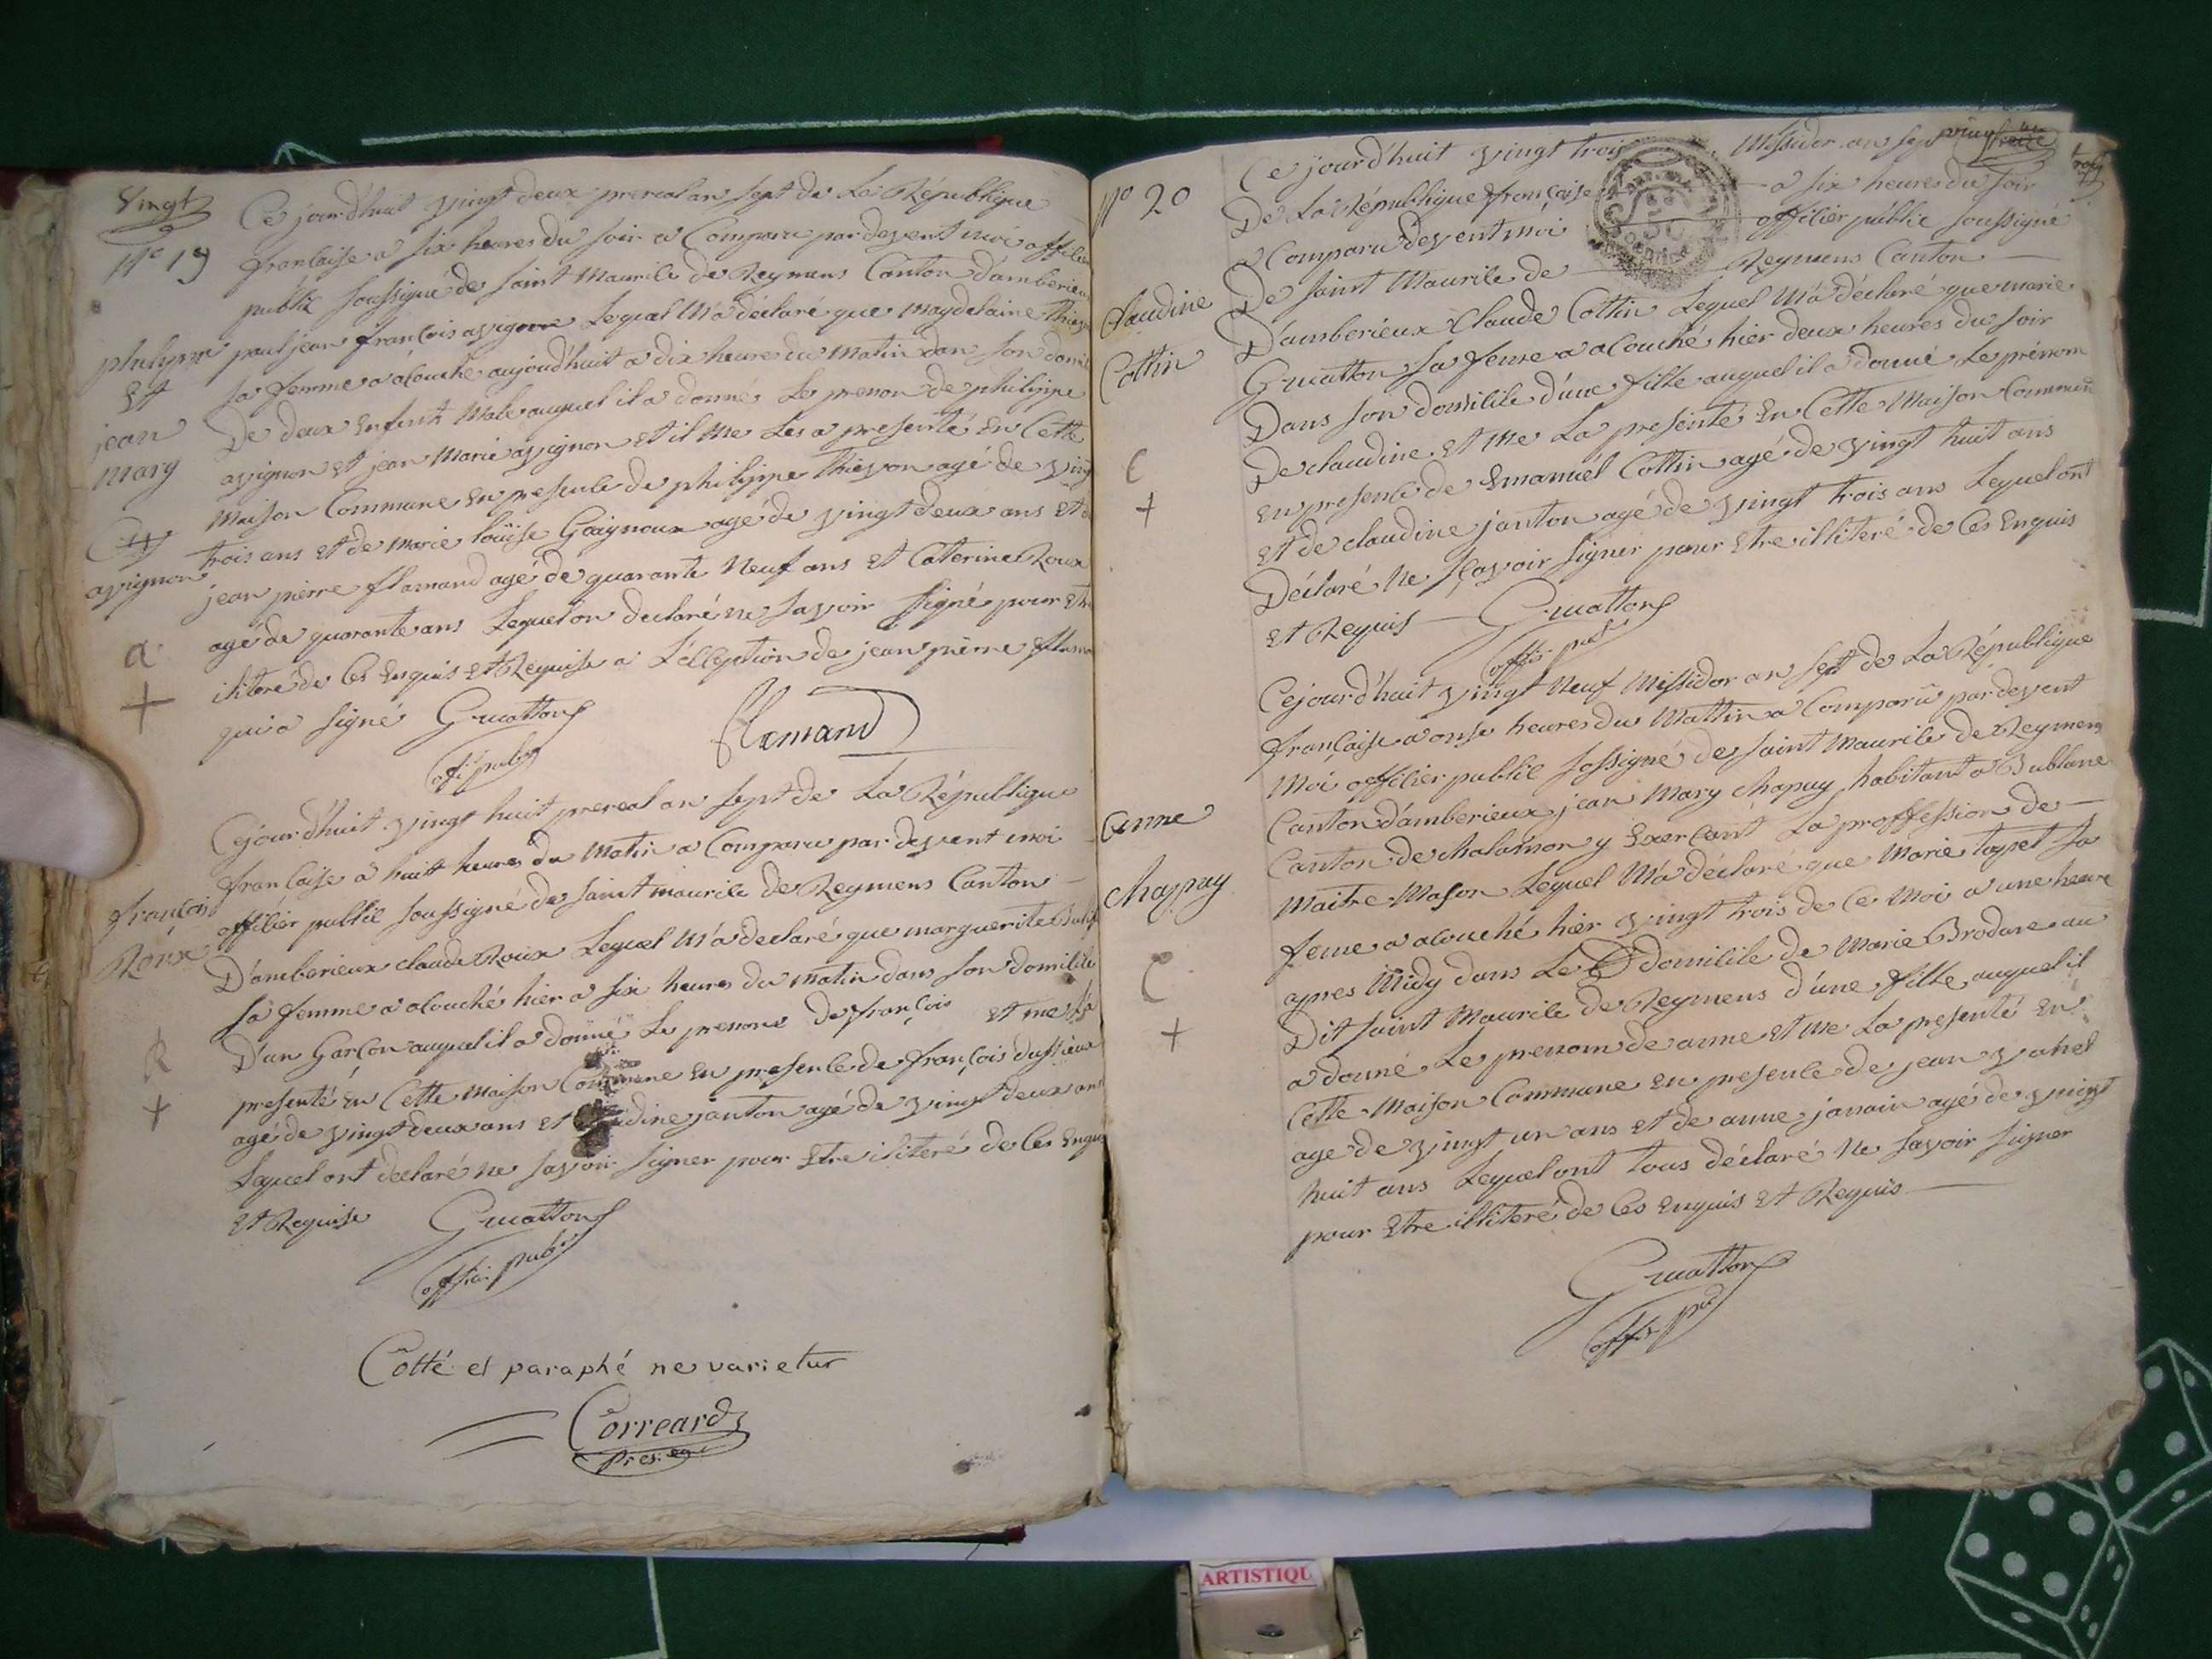 Vingt
N° 19
philippe
Et
jean
mary
avignon
a
+
Ce jourd'huit vingt deux prereal an sept de La République
franlaise a six heures du soir a Comparu par devent moi offilier
public soussigné de saint Maurile de Reymens Canton d'amberieux
paul jean françois avignon Lequel M'a déclaré que Magdelaine
sa femme a alouché aujoud'huit a dix heures du Matin dan son
De deux Enfent Male auquel il a donné Le prenon de philippe
avignon et jean Marie avignon et il Me Les a presenté En Cette
Maison Commune En presenle de philippe Thievon agé de
trois ans et de Marie loüise Gaignoux agé de vingt deux ans Et
jean pierre flamand agé de quarante Neuf ans et Caterine Roux
agé de quarante ans Lequel on declaré ne savoir signé pour
ilitere de Ces Enquis et Requise a L'elleption de jean pierre
qui a signé Gruatton
offi pub
flamand
françois
Roux
R
+
Cejourd'huit vingt huit prereal an sept de La République
franlaise a huit heures du Matin a Comparu par devent moi
offilier public soussigné de saint maurile de Reymens Canton
D'amberieux claude Roux Lequel M'a declaré que marguerite
sa femme a alouché hier a six heures du matin dans son domilile
D'un Garçon auquel il a donné Le prenome de françois et me l'a
presenté En Cette Maison Commune En presenle de françois dussieux
agé de vingt deux ans et Claudine janton agé de vingt deux ans
Lequel ont declaré ne savoir signer pour Etre ilitere de Ces
Et Requise Gruatton
offici pub
Cotté et paraphé ne varietur
Correard
Pres. en
vingt
trois
N° 20
Claudine
Cottin
C
+
Ce jourd'huit vingt trois Messidor an sept
De La République française a six heures du soir
a Comparu devent moi offilier public soussigné
De saint Maurile de Reymens Canton
D'amberieux Claude Cottin Lequel M'a déclaré que marie
Gruatton sa feme a alouché hier deux heures du soir
Dans son domilile d'une fille auquel il a donné Le prénom
De claudine et Me La presenté En Cette Maison Commune
En presenle de Emanuel Cottin agé de vingt huit ans
et de claudine janton agé de vingt trois ans Lequel ont
Déclaré Ne sçavoir signer pour Etre illiteré de Ces Enquis
et Requis Gruatton
offi pub
anne
chapuy
C
+
Cejourd'huit vingt Neuf Messidor an sept de La République
française a onse heures du Mattin a Comparu par devent
Moi offilier public sossigné de saint Maurile de Reymens
Canton d'amberieux jean Mary chapuy habitant a Bublane
Canton de chalamon y Exerlant La proffession de
Maitre Mason Lequel M'a déclaré que Marie tapet sa
feme a alouché hier vingt trois de Ce Moi a une heure
apres Midy dans Le domilile de Marie Brodare au
Dit saint Maurile de Reymens d'une fille auquel il
a donné Le prenom de anne et Me La presenté En
Cette Maison Commune En presenle de jean
agé de vingt un ans et de anne janain agé de vingt
huit ans Lequel ont tous déclaré Ne savoir signer
pour Etre illiteré de Ces Enquis et Requis
Gruatton
offi pub
ARTISTIQU